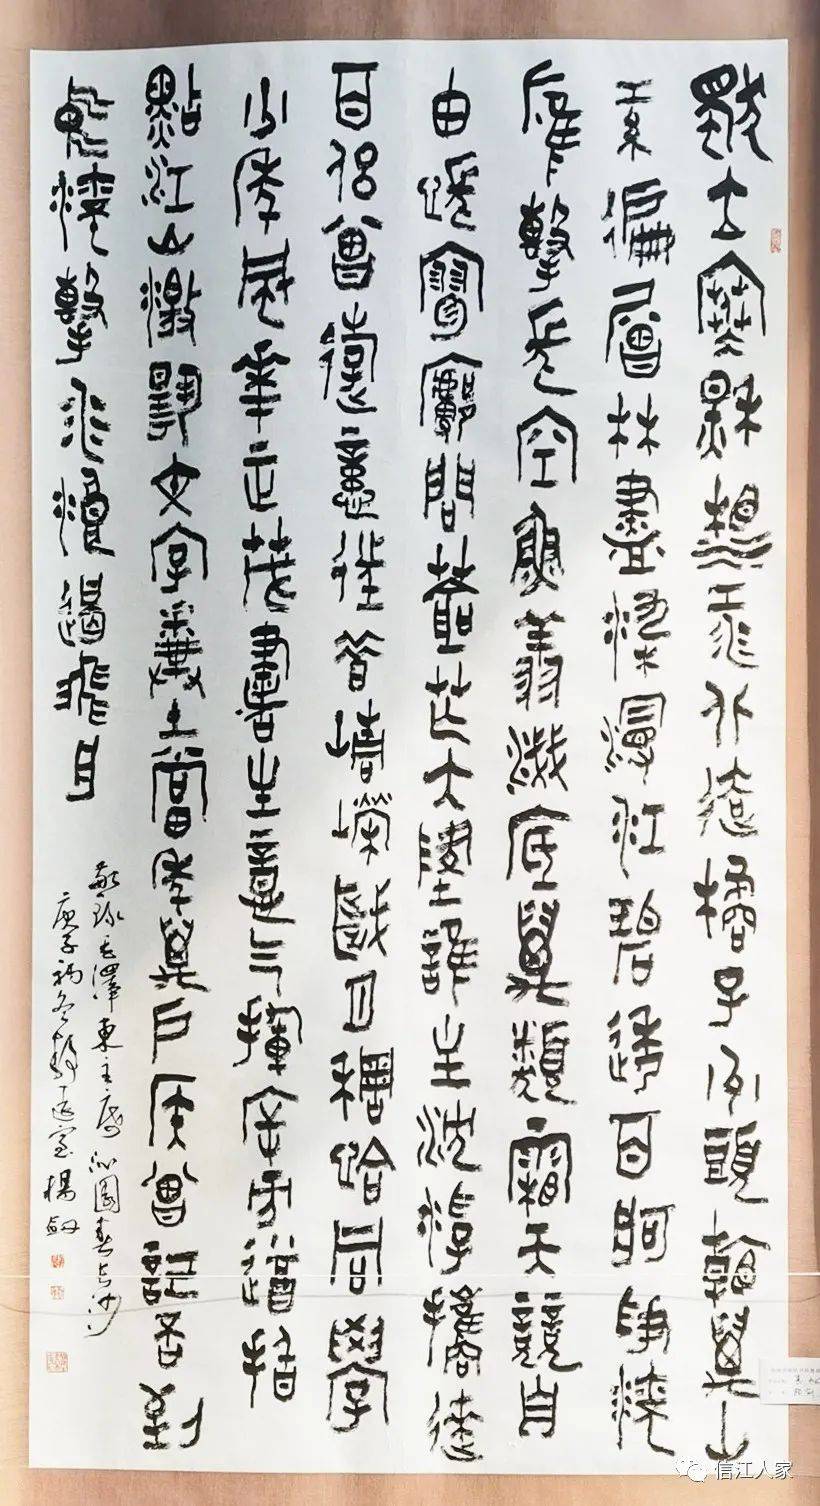 獨立寒秋湘江北去橘子洲頭看萬山
紅遍層林盡染漫江碧透百舸爭流
鷹擊長空魚翔淺底萬類霜天競自
由悵寥廓問蒼茫大地誰主沉浮攜來
百侶曾遊憶往昔崢嶸歲月稠恰同學
少年風華正茂書生意氣揮斥方遒指
點江山激揚文字糞土當年萬戶侯曾記否到
中流擊水浪遏飛舟
敬錄毛澤東主席沁園春長沙
庚子初冬 楊劍
信江人家